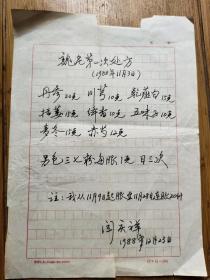 第一次处方
(1988年11月3日)
丹参20克 川芎10克 薤白15克
桔蒌15克 降香10克 五味子10克
麦冬15克 赤芍12克
另包三七粉每服1克 日三次
注:我从11月9日起服至11月28日连服20付
闫庆祥
1988年12月25日